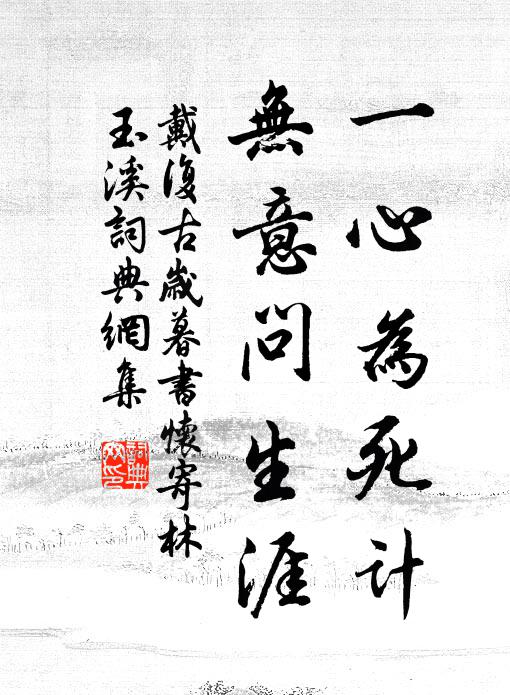 一心為死計
無意問生涯
戴復古歲暮書懷寄林
玉溪詞典網集
詞典網印